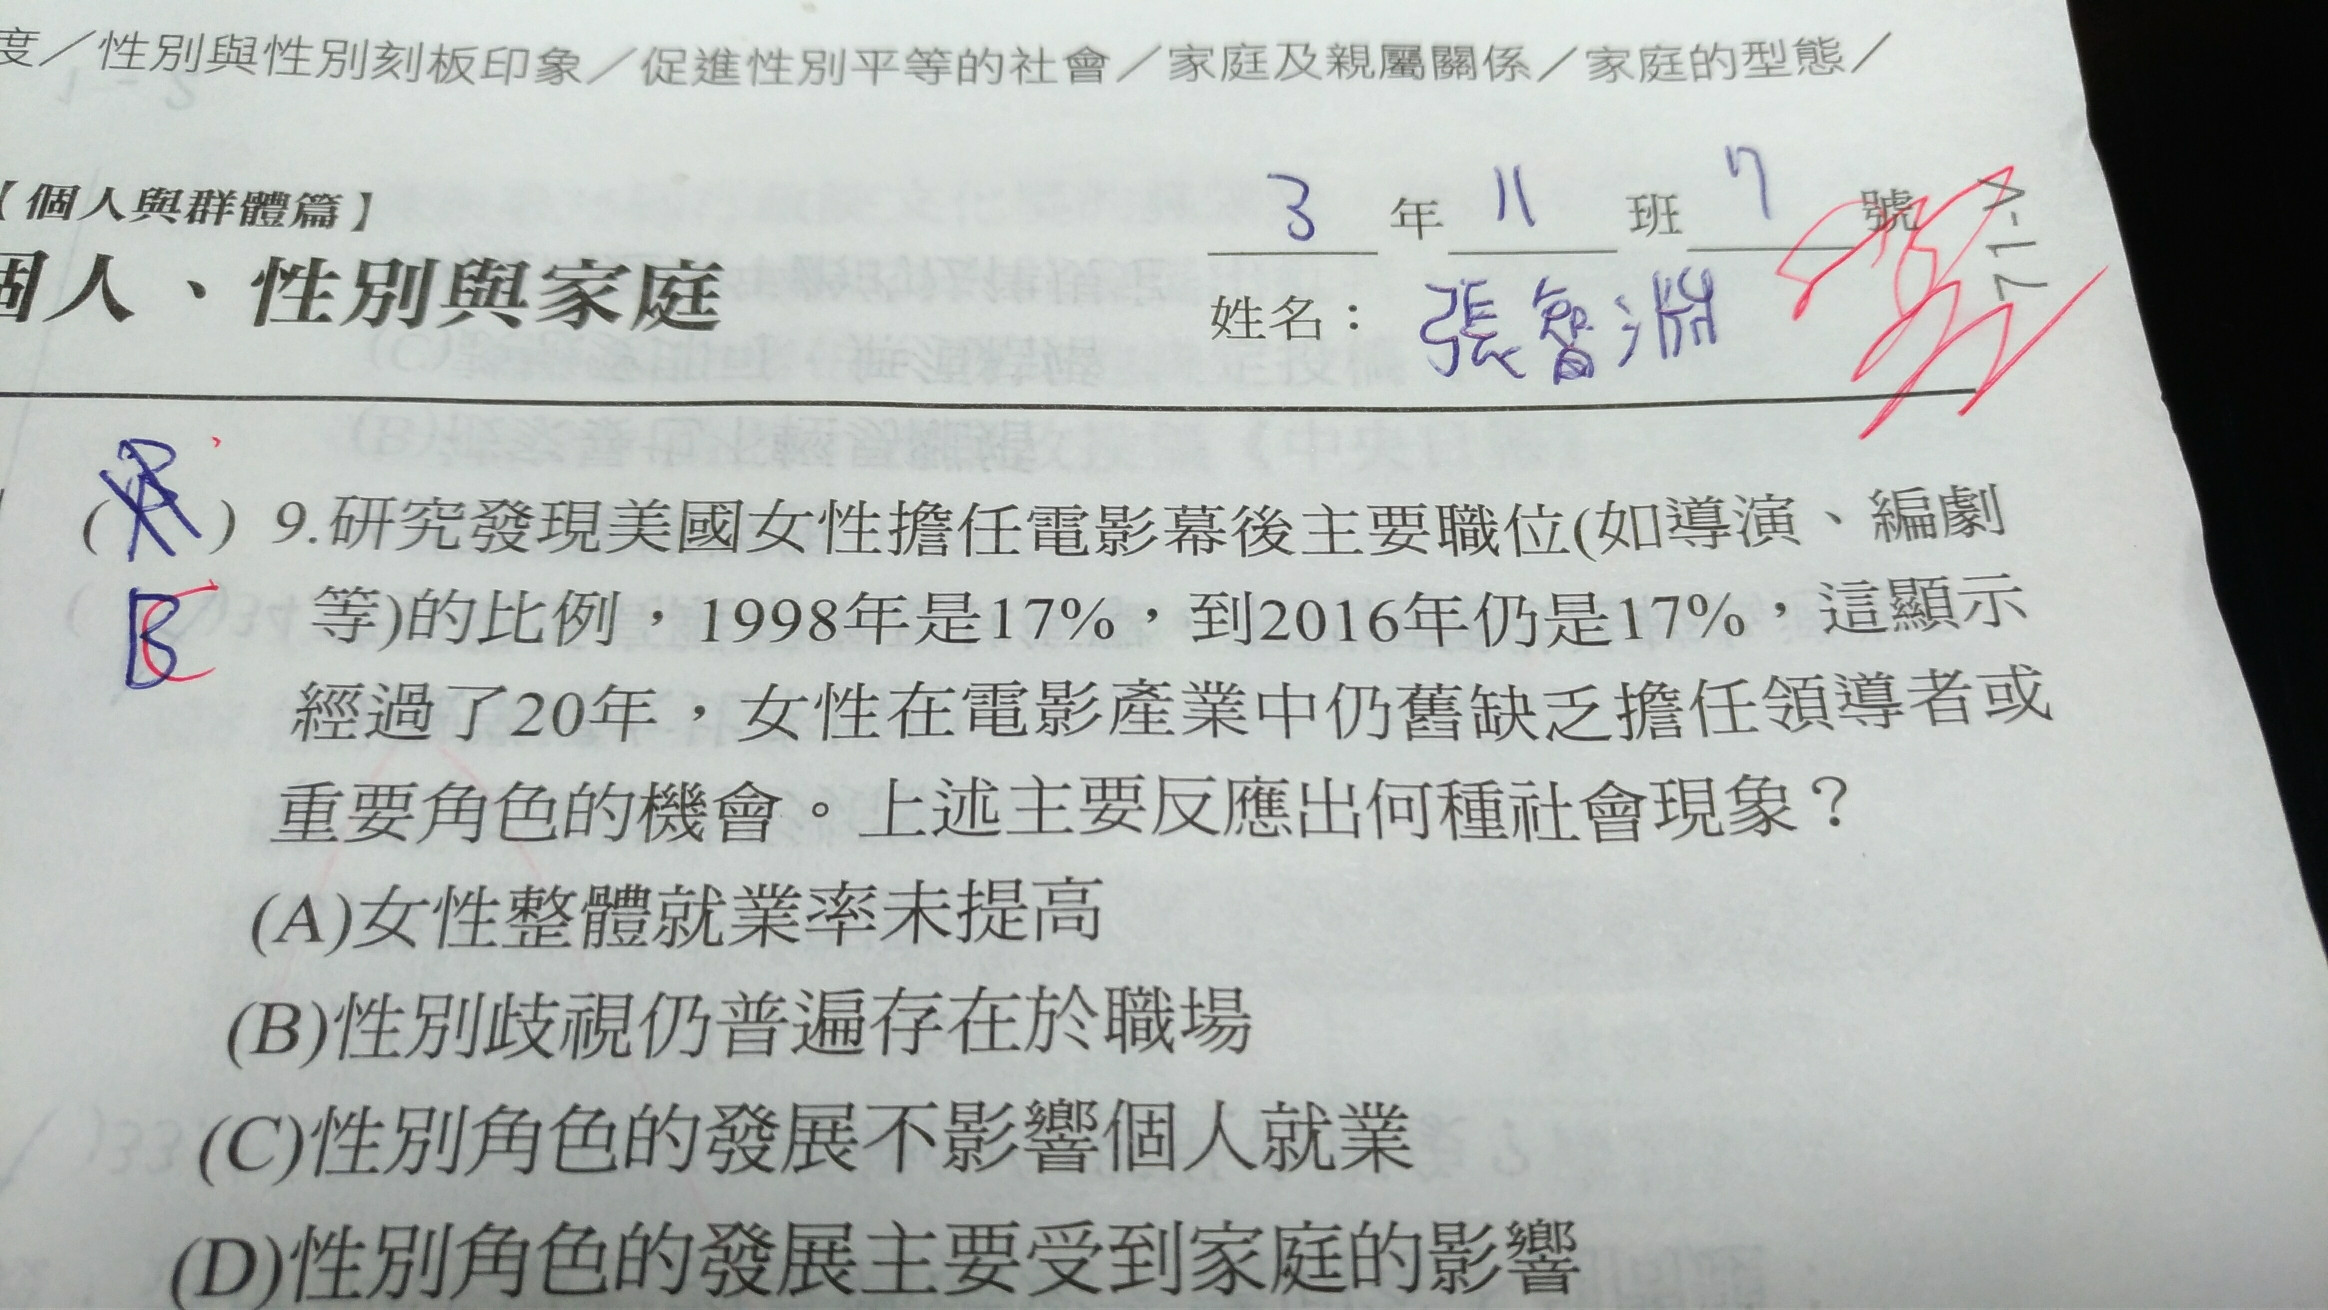 度／性別與性別刻板印象／促進性別平等的社會／家庭及親屬關係／家庭的型態／
【個人與群體篇】
個人、性別與家庭
3 年 11 班 7 號
姓名：張智淵
71-V
( ) 9.研究發現美國女性擔任電影幕後主要職位(如導演、編劇
B C 等)的比例，1998年是17%，到2016年仍是17%，這顯示
經過了20年，女性在電影產業中仍舊缺乏擔任領導者或
重要角色的機會。上述主要反應出何種社會現象？
(A)女性整體就業率未提高
(B)性別歧視仍普遍存在於職場
(C)性別角色的發展不影響個人就業
(D)性別角色的發展主要受到家庭的影響